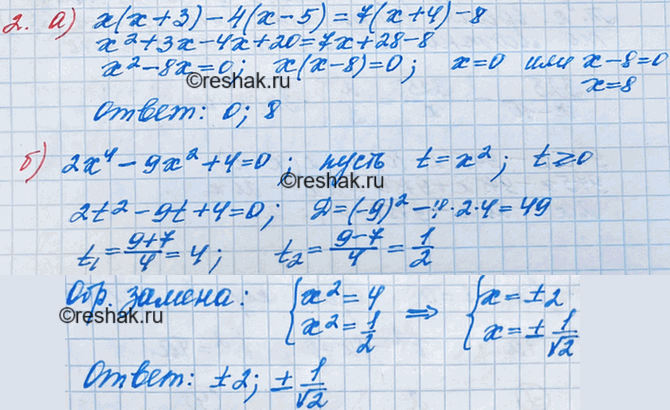 2. а) x(x+3)-4(x-5)=7(x+4)-8
x²+3x-4x+20=7x+28-8
x²-8x=0; x(x-8)=0; x=0 или x-8=0
x=8
©reshak.ru
Ответ: 0; 8
б) 2x⁴-9x²+4=0; пусть t=x²; t≥0
©reshak.ru
2t²-9t+4=0; D=(-9)²-4·2·4=49
t₁=(9+7)/4=4; t₂=(9-7)/4=1/2
Обр. замена: {x²=4 ⇒ {x=±2
©reshak.ru
x²=1/2 x=±1/√2
Ответ: ±2; ±1/√2